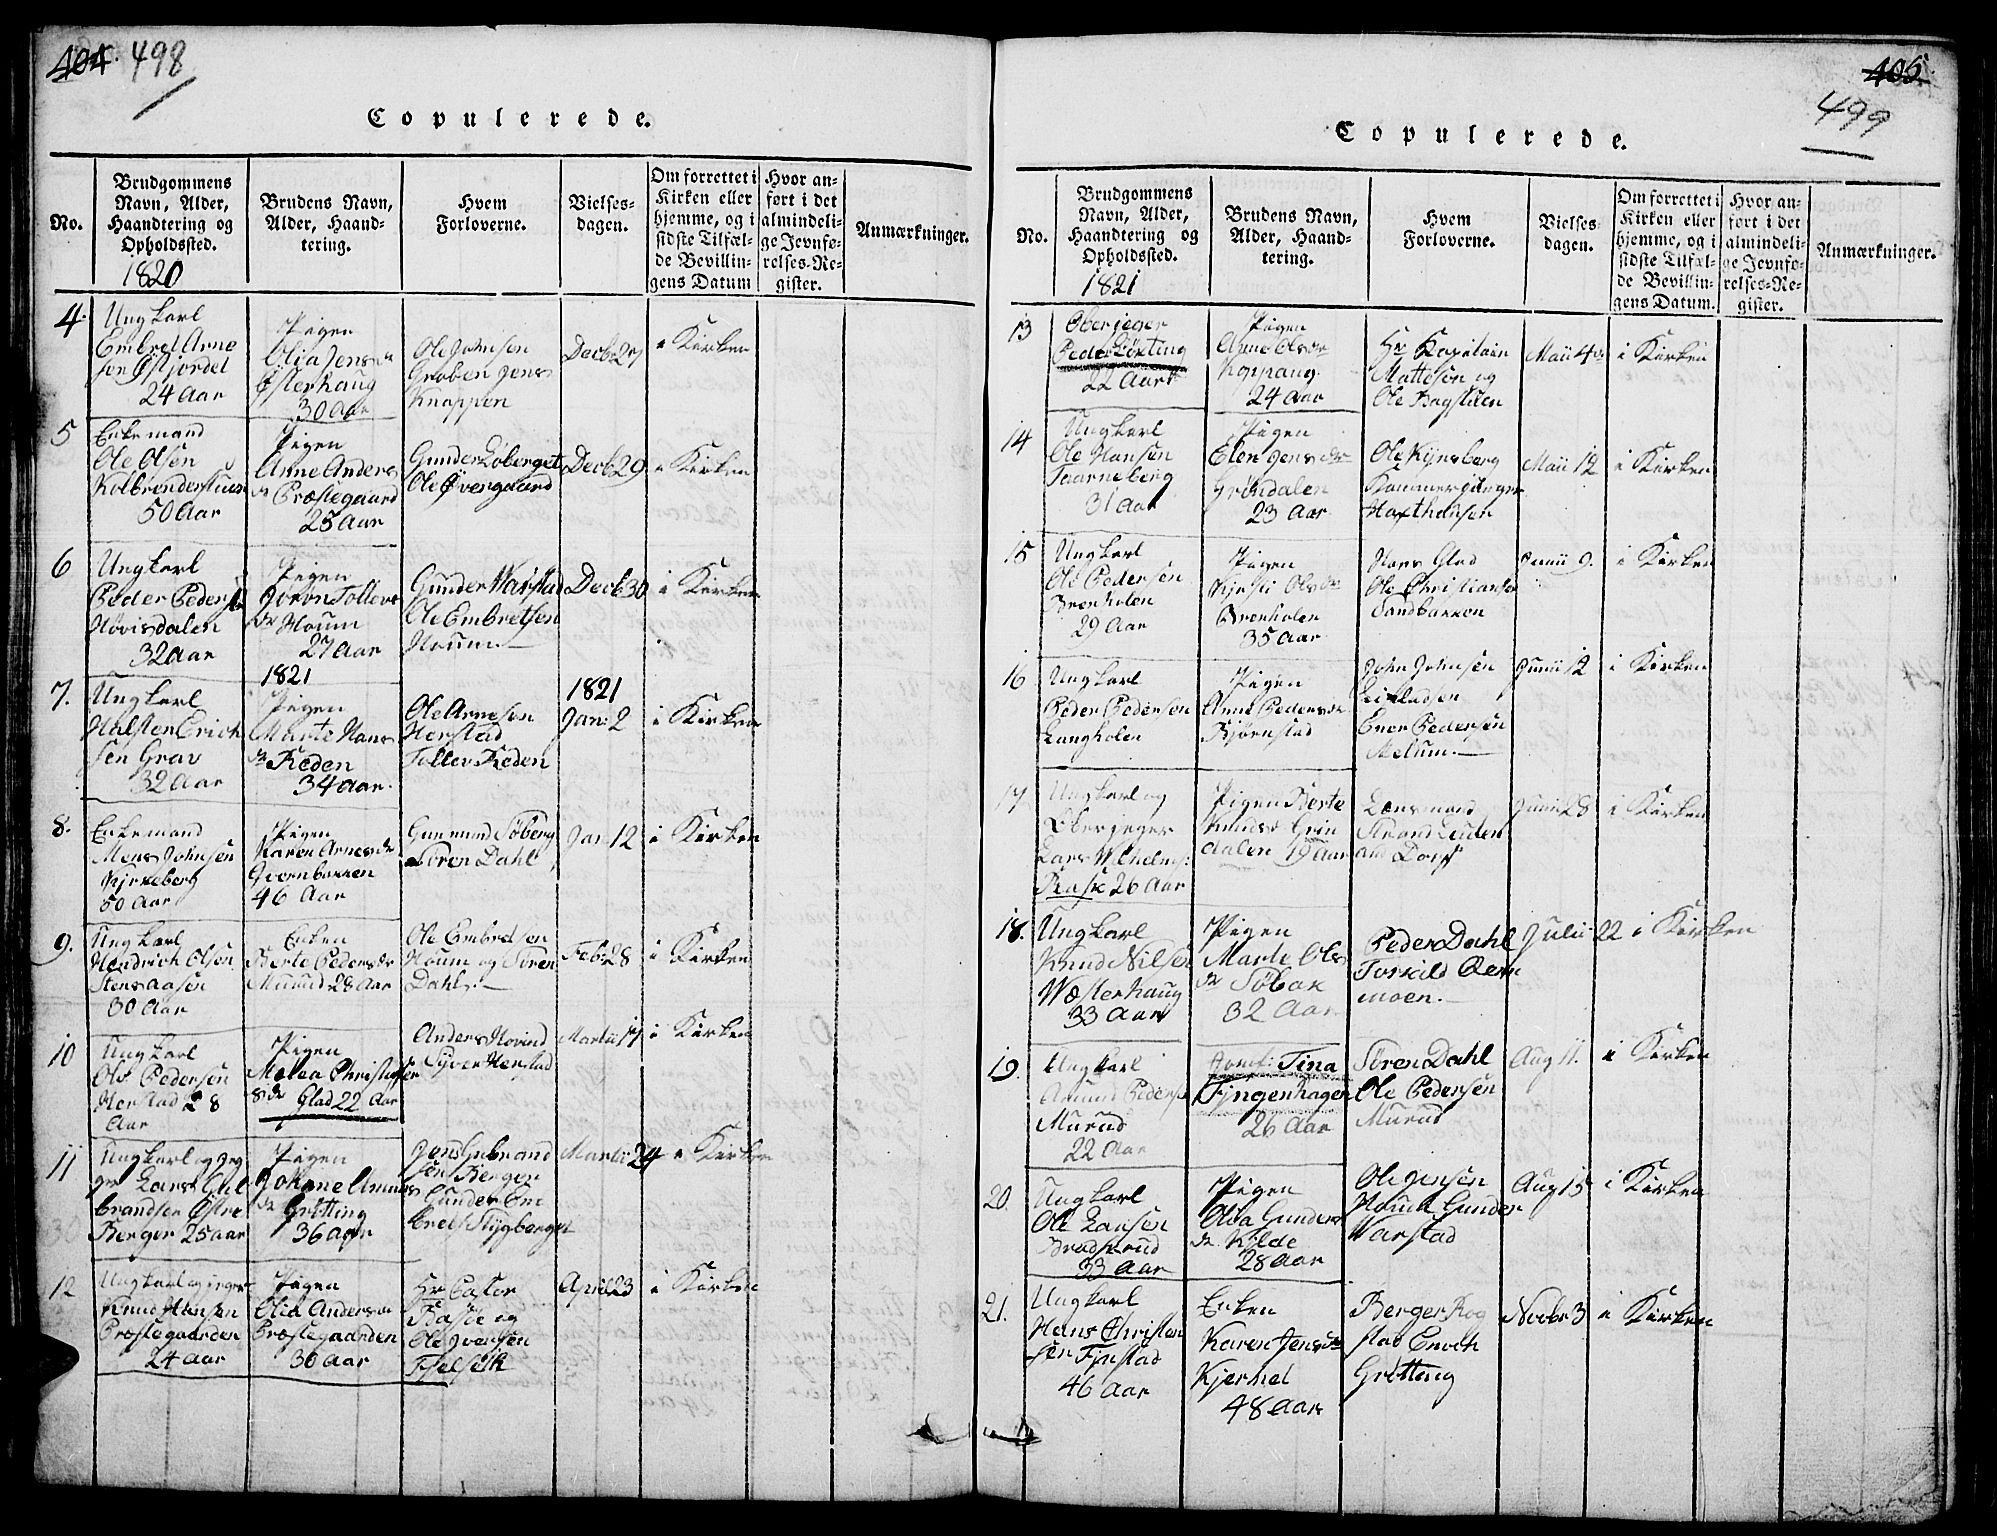 404. 498
Copulerede.
No.
Brudgommens Navn, Alder, Haandtering og Opholdssted.
1820
Brudens Navn, Alder, Haandtering.
Hvem Forloverne.
Vielses-dagen.
Om forrettet i Kirken eller hjemme, og i sidste Tilfælde Bevillingens Datum
Hvor anført i det almindelige Jevnførelses-Register.
Anmærkninger.
4.
Ungkarl
Embret Arne
sen Østjordet
24 Aar
Pigen
Olia Jensdr
Østerhaug
30 Aar
Ole Johnsen
Graben Jens
Knappen
Decb: 27
i Kirken
5
Enkemand
Ole Olsen
Kolbrenderstuen
50 Aar
Pigen
Anne Anders
dr Præstegaard
25 Aar
Gunder Løberget
Ole Øvergaard
Decb 29
i Kirken
6
Ungkarl
Peder Peders
Høvisdalen
32 Aar
Pigen
Joron Tollevs
dr Houm
27 Aar
Gunder Warstad
Ole Embretsen
Houm.
Decb 30
i Kirken
1821
1821
7.
Ungkarl
Halsten Erich
sen Grav
32 Aar
Pigen
Marte Hans
dr Reden
34 Aar.
Ole Arnesen
Herstad
Tollev Reden
Jan: 2
i Kirken
8.
Enkemand
Mons Johnsen
Kirkeberg
50 Aar
Pigen
Karen Arnesdr
Qvernbakken
46 Aar
Gunmund Søberg
Søren Dahl
Jan: 12
i Kirken
9.
Ungkarl
Hendrich Olsen
Stensaasen
30 Aar
Enken
Berte Pedersdr
Murud 28 Aar
Ole Embretsen
Houm og Søren
Dahl.
Feb: 28
i Kirken
10
Ungkarl
Ole Pedersen
Herstad 28
Aar
Pigen
Malea Christofer
sdr Glad 22 Aar
Anders Hovind
Syver Herstad
Martii 17
i Kirken
11
Ungkarl og Jeg
er Lars Gul
brandsen Østre
Berger 25 aar
Pigen
Johane Amun
dr Grötting
36 Aar
Jens Gubrand
sen Berger
Gunder Em
brets Stygberget
Martii 24
i Kirken
12
Ungkarl og jeger
Knud Hansen
Præstegaarden
24 Aar
Pigen
Olia Andersdr
Præstegaarden
36 Aar
Hr Pastor
Raske og
Ole Ivensen
April 23
i Kirken
405.
499
Copulerede.
No.
Brudgommens Navn, Alder, Haandtering og Opholdssted.
1821
Brudens Navn, Alder, Haandtering.
Hvem Forloverne.
Vielses-dagen.
Om forrettet i Kirken eller hjemme, og i sidste Tilfælde Bevillingens Datum.
Hvor anført i det almindelige Jevnførelses-Register.
Anmærkninger.
13
Oberjeger
Peder Løkting
22 Aar
Pigen
Anne Olsdr
Koppang.
24 Aar
Hr Kapitain
Mattesen og
Ole Bagstuen
Maii 4
i Kirken
14
Ungkarl
Ole Hansen
Taarneberg
31 Aar
Pigen
Elen Jensdr
Gröndalen
23 Aar
Ole Kynsberg
Kammerjunger
Haxthausen
Maii 12
i Kirken
15
Ungkarl
Ole Pedersen
Brenholen
29 Aar
Pigen
Kjersti Olsdr
Brenholen
35 Aar
Hans Glad
Ole Christiansen
Sandbakken
Junii 9.
i Kirken
16
Ungkarl
Peder Pedersen
Langholen
Pigen
Anne Pedersdr
Bjørnstad
John Johnsen
Ener Pedersen
Melum.
Junii 12
i Kirken
17
Ungkarl og
Oberjeger
Lars Wilhelms:
Rask 26 Aar
Pigen Berte
Knudsd Grin
dalen 19 Aar
Lensmand
Strand
Dorff
Junii 28
i Kirken
18.
Ungkarl
Knud Nilsen
Wæsterhaug
33 Aar
Pigen
Marte Ols
dr Søbak
32 Aar
Peder Dahl
Torkild Oern
moen.
Julii 22
i Kirken
19.
Ungkarl
Amund Pedersen
Murud
22 Aar
Jomf: Tina
Fyngenhagen
26 Aar
Søren Dahl
Ole Pedersen
Murud
Aug 11.
i Kirken
20.
Ungkarl
Ole Larsen
Bradterud
33 Aar
Pigen
Olea Gunders
dr. Kilde
28 Aar
Ole Jensen
Houm Gunder
Warstad
Aug 15
i Kirken
21.
Ungkarl
Hans Christen
sen Fjnstad
46 Aar
Enken
Karen Jensdr
Kjernet
48 Aar
Berger Rog
stad Enoch
Grötting
Novbr 3
i Kirken